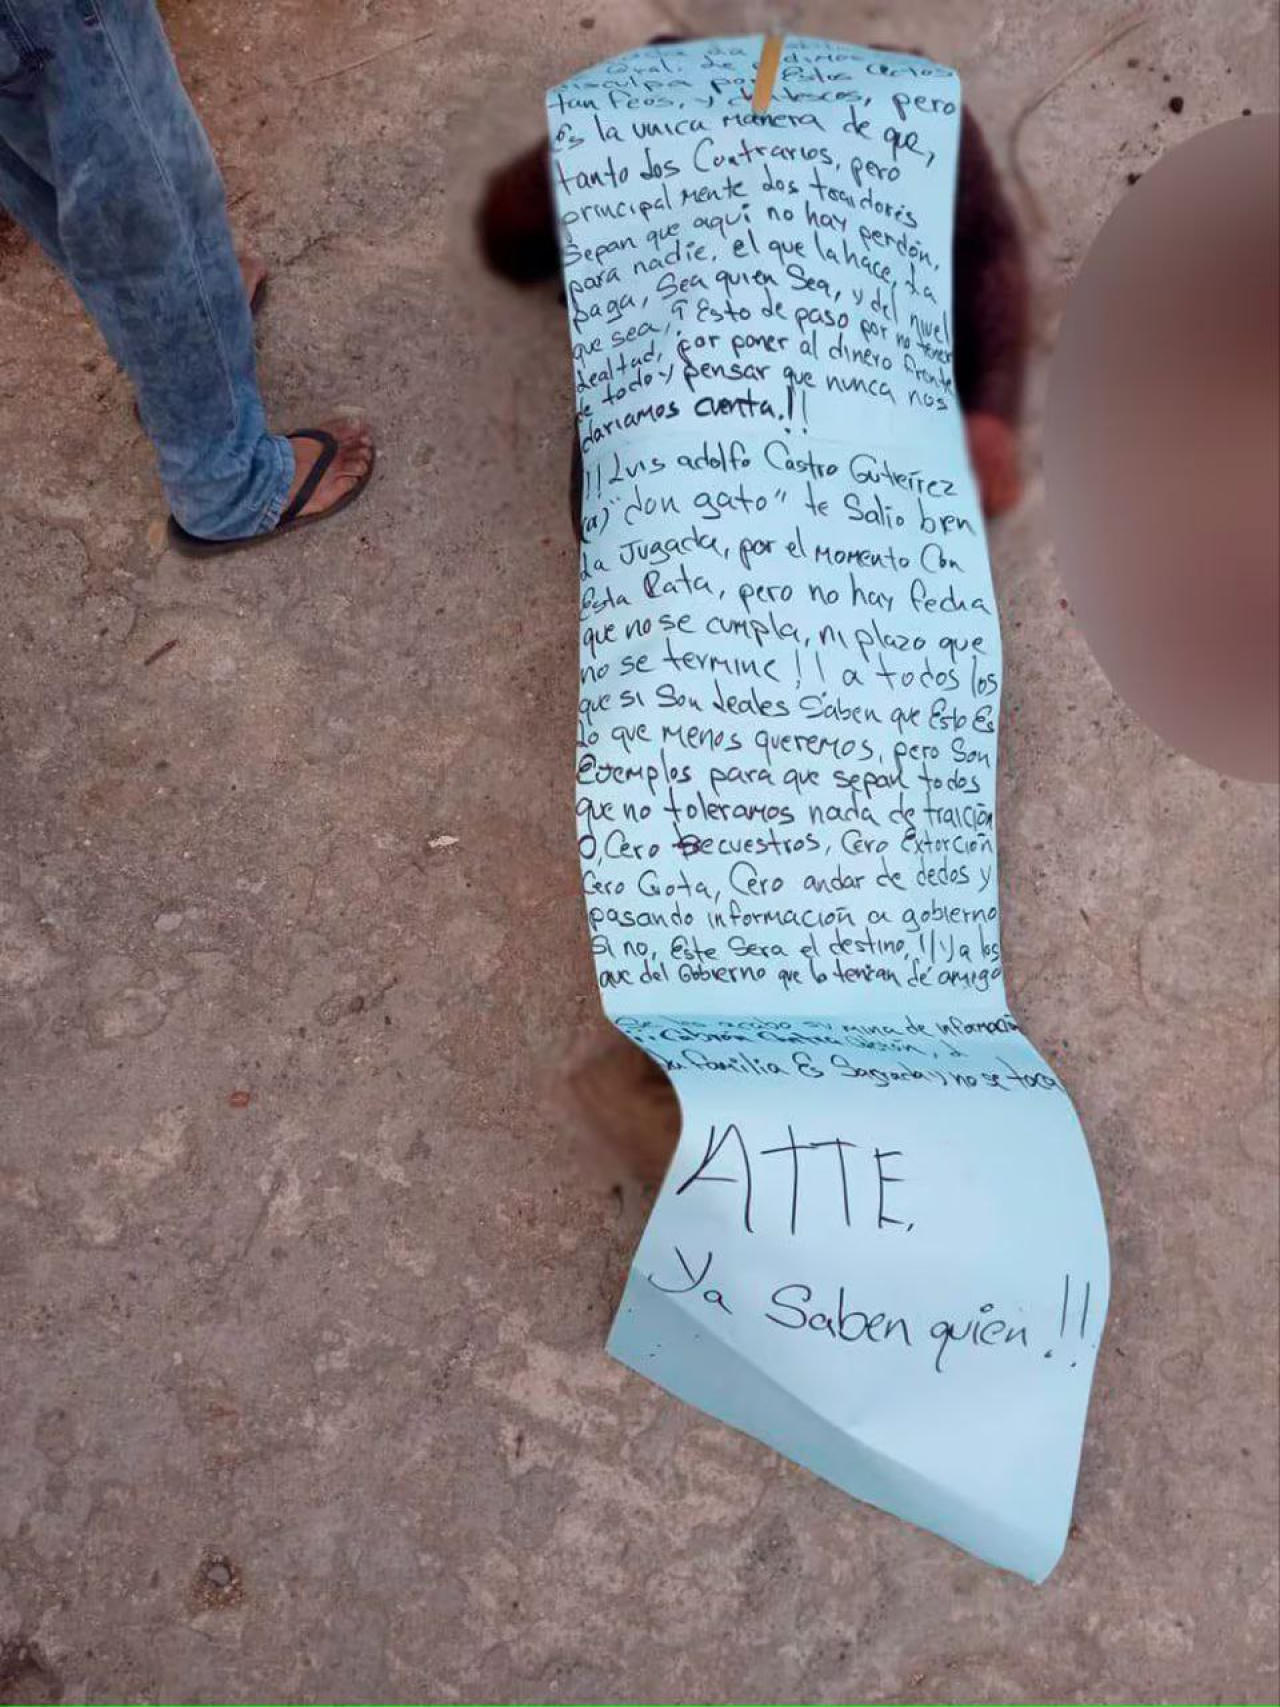 Gral. de
disculpa por Estos actos
tan feos, y, pero
Es la unica manera de que,
tanto Los Contrarios, pero
principal mente Los traidores
Sepan que aquí no hay perdón,
para nadie, el que la hace, La
paga, Sea quien Sea, y del nivel
que sea, Esto le paso por no tener
Lealtad, por poner al dinero frente
de todo y pensar que nunca nos
dariamos cuenta.!!
!! Luis adolfo Castro Gutierrez
(a) "don gato" te Salio bien
La Jugada, por el MOMENTO Con
Esta Rata, pero no hay fecha
que no se cumpla, ni plazo que
no se termine!! a todos los
que si Son Leales Saben que Esto Es
Lo que menos queremos, pero Son
Ejemplos para que sepan todos
que no toleramos nada de traición
O, Cero Secuestros, Cero Extorción
Cero Gota, Cero andar de dedos y
pasando información a gobierno
Si no, Este Sera el destino, !! y a los
que del Gobierno que lo tenian de amigo
Se les acabo su mina de información
Cabrón Contra Cabrón, L
La familia Es Sagrada y no se toca
ATTE.
Ya Saben quien!!